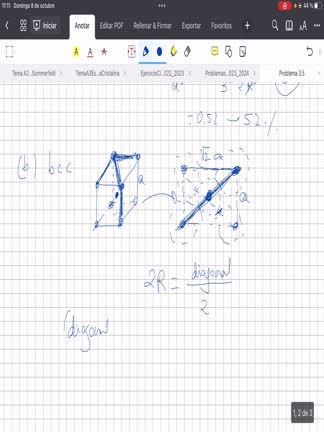 11:11 Domingo 8 de octubre
44 %
Iniciar Anotar Editar PDF Rellenar & Firmar Exportar Favoritos
Tema A2...Sommerfeld TemaA3Es...aCristalina EjercicioCl...022_2023 Problemas...023_2024 Problema 3.5
= 0.52 → 52 %
(b) bcc
√2 a
a
a
2R = diagonal
2
(diagonal
1, 2 de 3